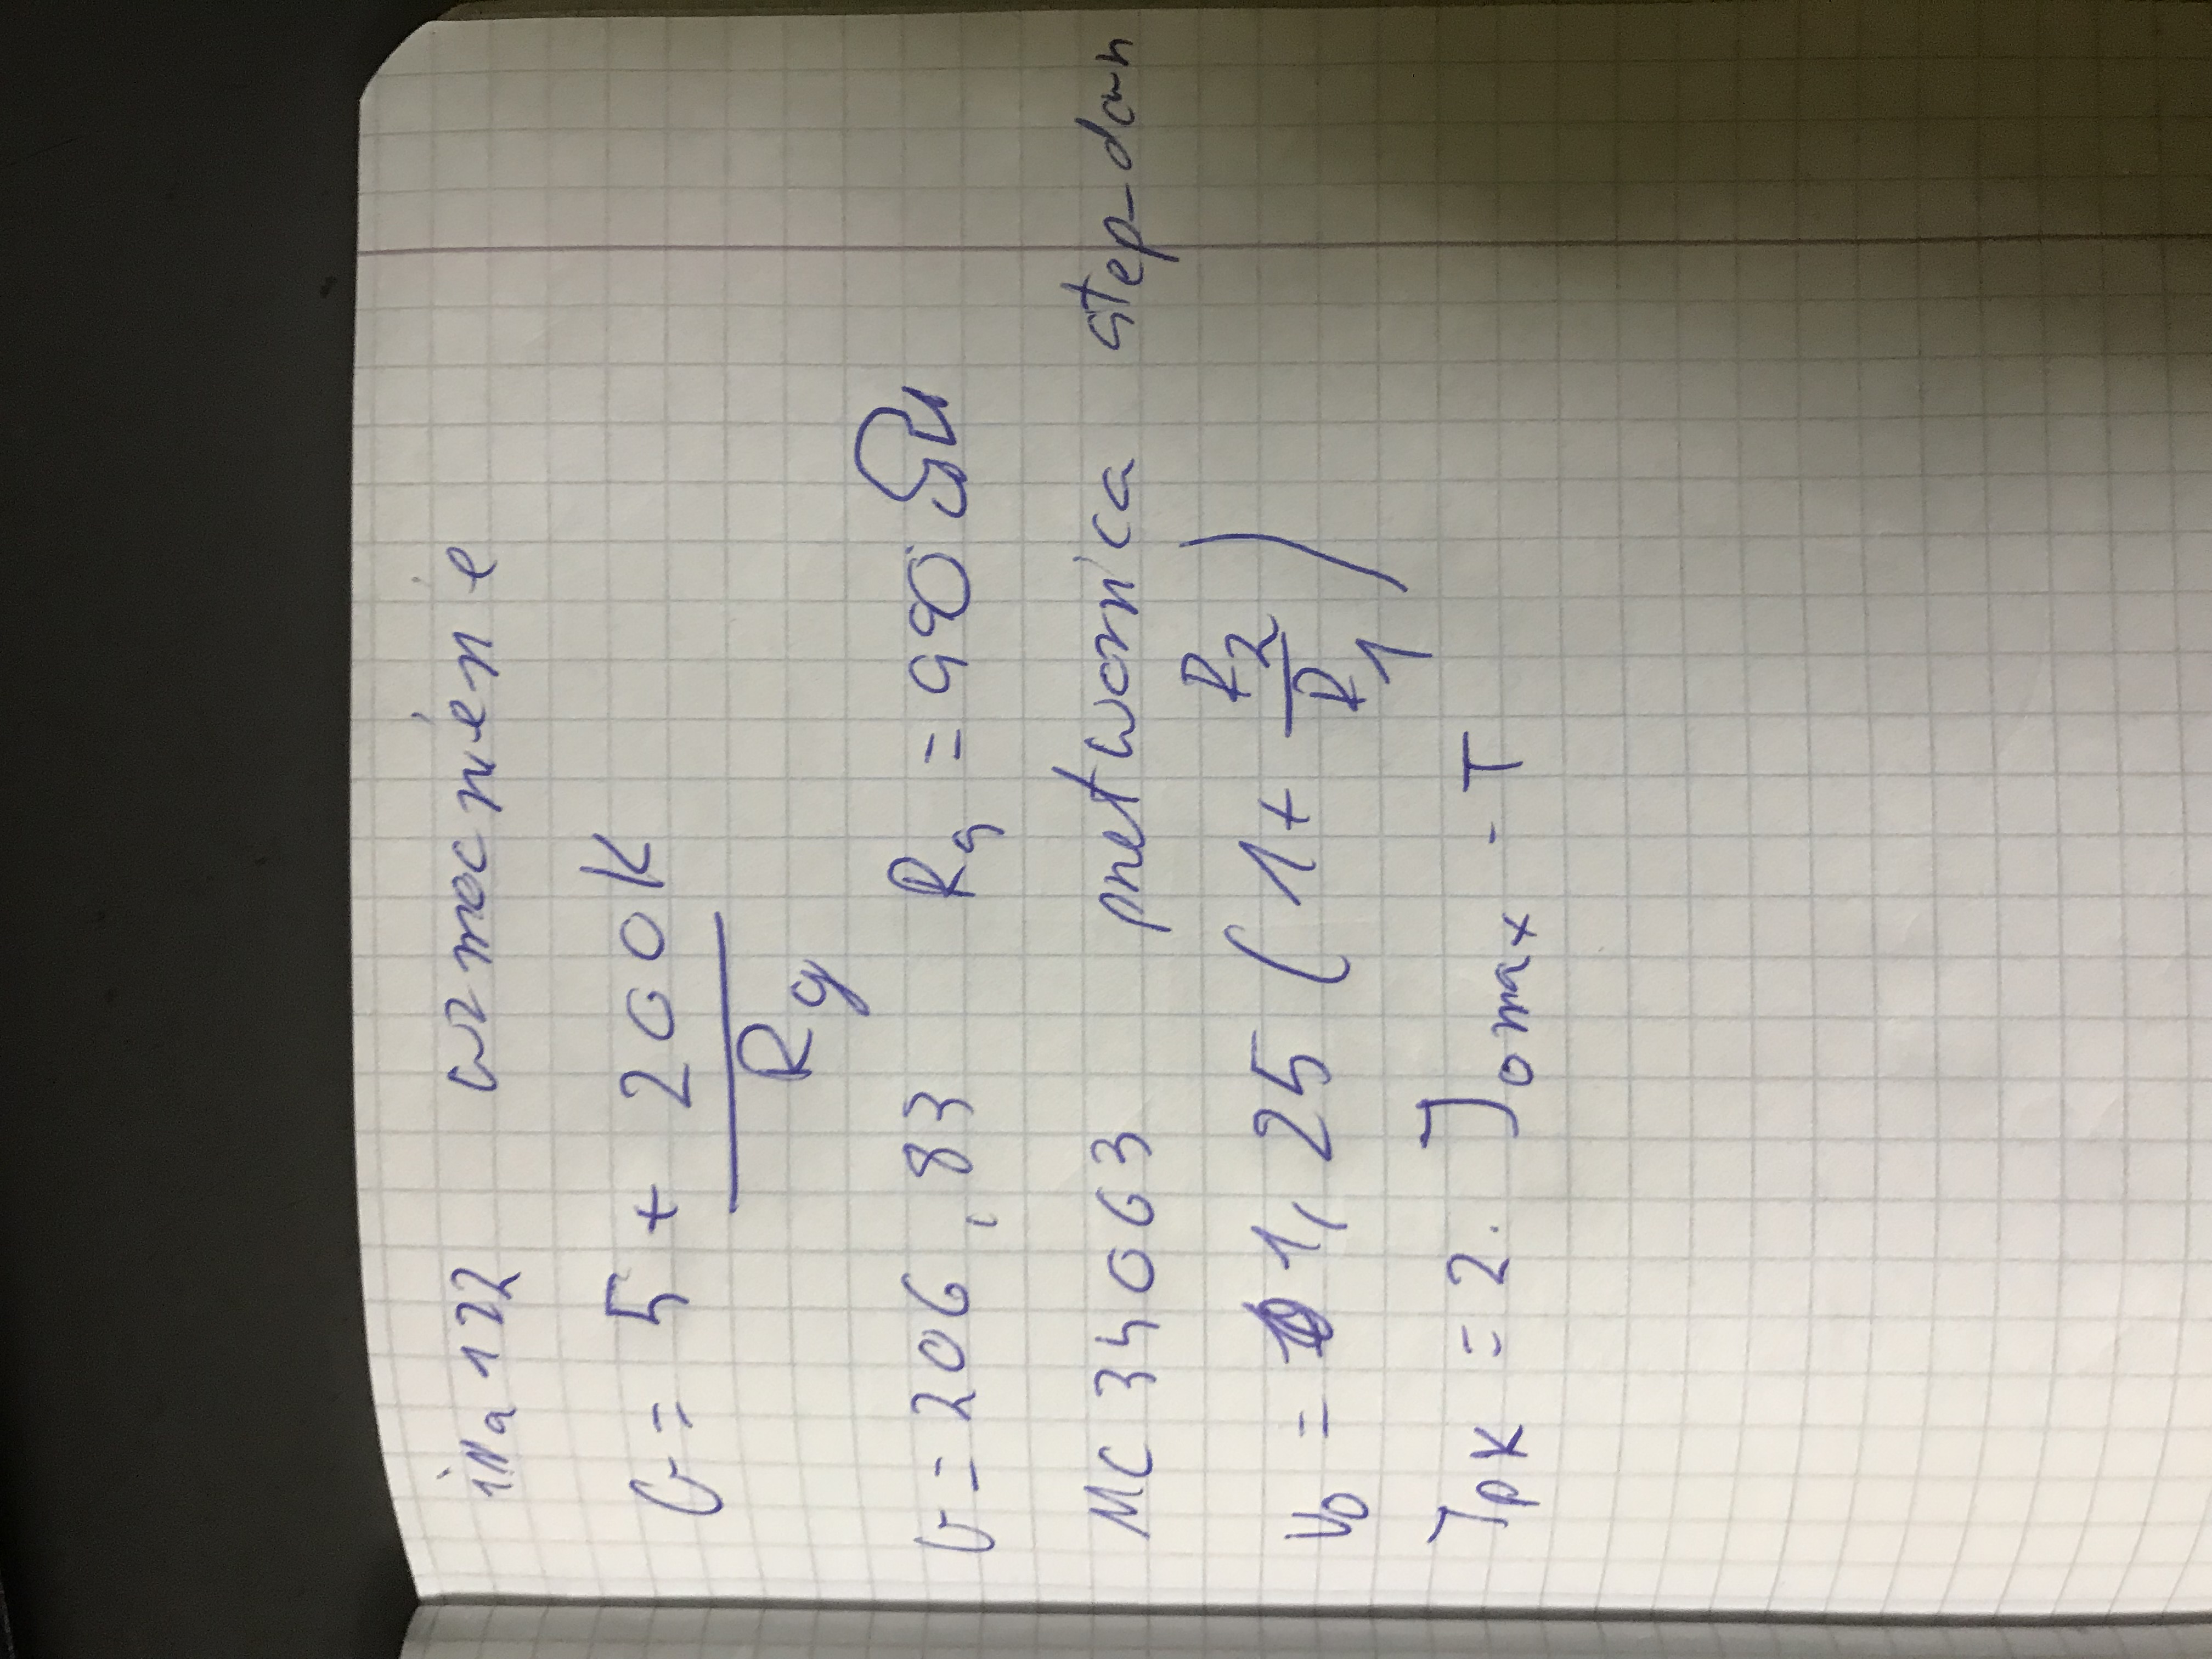 iNa 122 wzmocnienie
G = 5 + 200K
Rg
G = 206,83 Rg = 990 Ω
MC 34063 przetwornica step-down
V0 = 1,25 (1 + R2/R1)
Ipk = 2 · Iomax - T